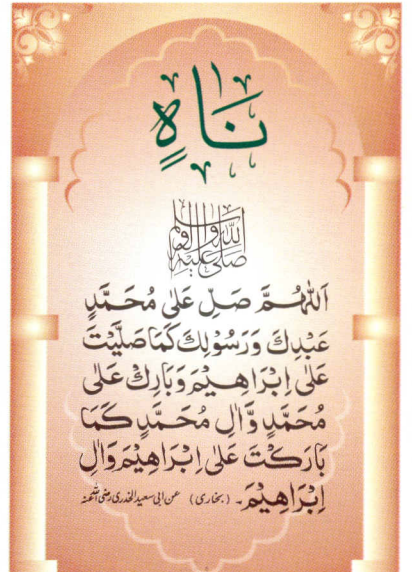 نَاهٍ
صَلَّى اللّٰهُ عَلَيْهِ وَآلِهٖ وَسَلَّمَ
اَللّٰهُمَّ صَلِّ عَلٰى مُحَمَّدٍ
عَبْدِكَ وَرَسُوْلِكَ كَمَا صَلَّيْتَ
عَلٰى اِبْرَاهِيْمَ وَبَارِكْ عَلٰى
مُحَمَّدٍ وَّاٰلِ مُحَمَّدٍ كَمَا
بَارَكْتَ عَلٰى اِبْرَاهِيْمَ وَاٰلِ
اِبْرَاهِيْمَ۔ (بخاری) عن ابی سعید الخدری رضی اللہ عنہ